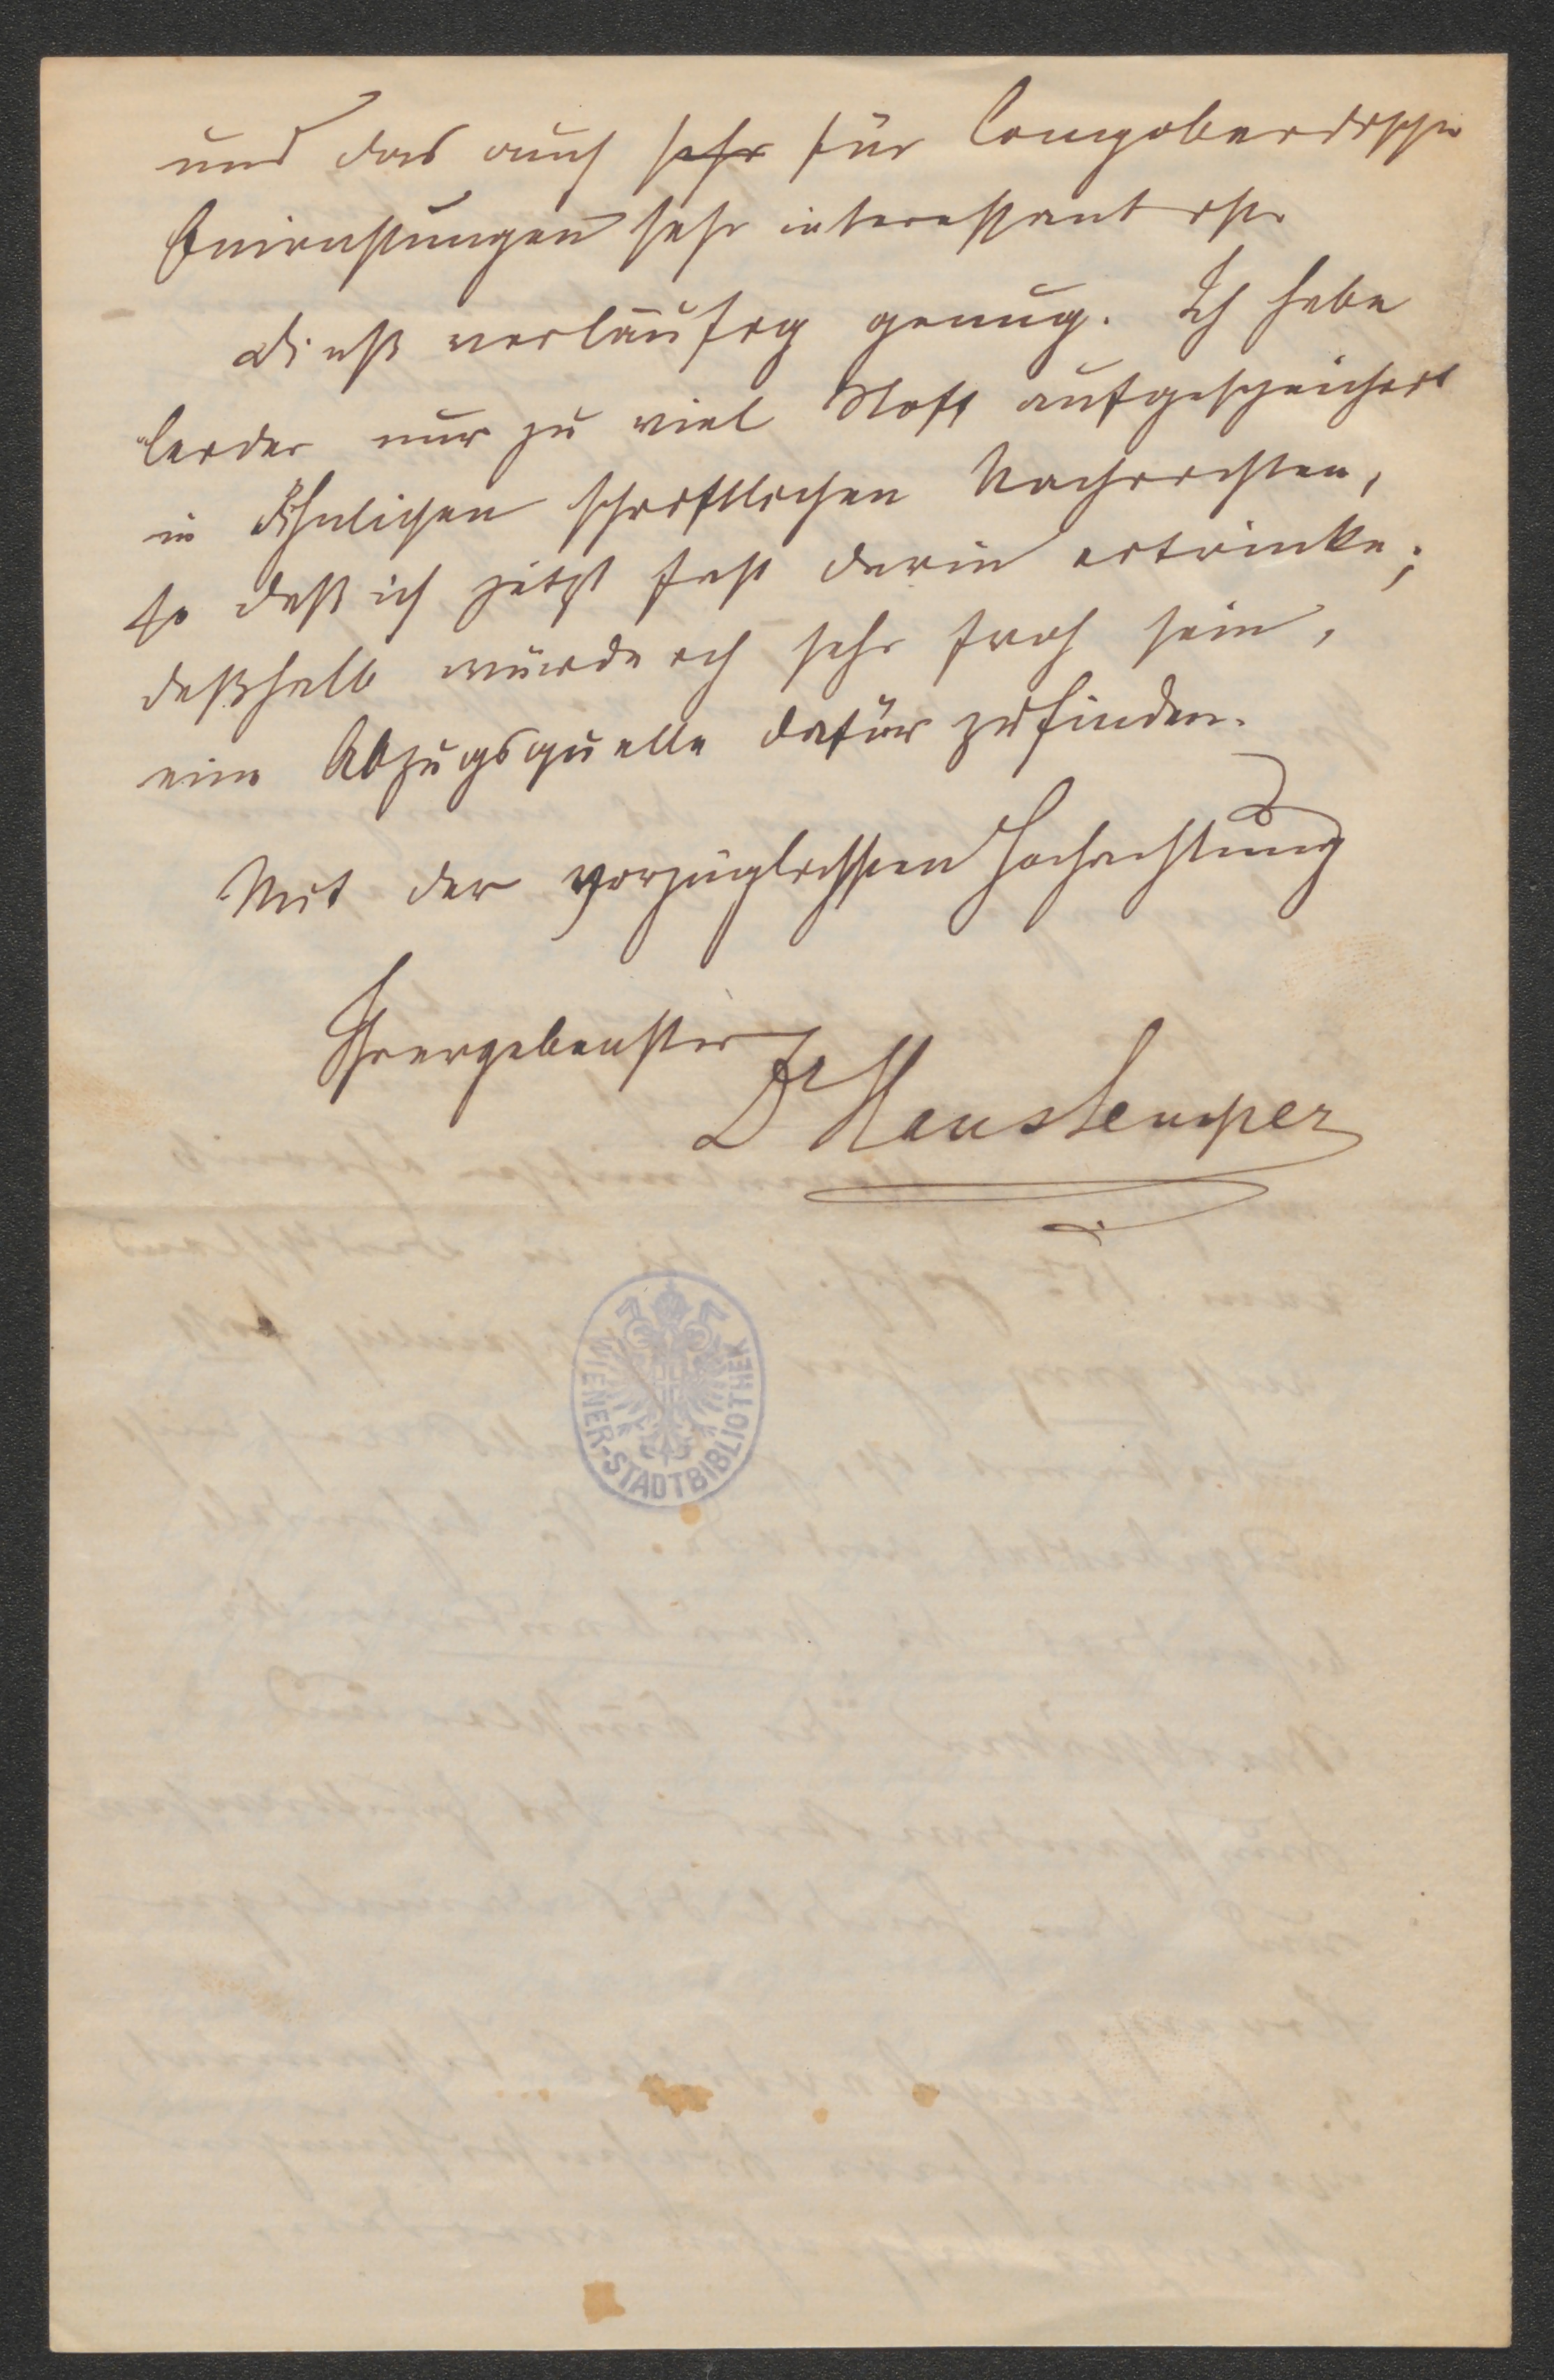 und das auch sehr für Longobardische
Einrichtungen sehr interessant ist.
Dieß vorläufig genug. Ich habe
leider nur zu viel Stoff aufgespeichert
in ähnlichen schriftlichen Nachrichten,
so daß ich jetzt fast darin ertrinke;
deßhalb würde ich sehr froh sein,
eine Abzugsquelle dafür zu finden.
Mit der vorzüglichsten Hochachtung
Ihr ergebenster
Dr Hans Semper
WIENER-STADTBIBLIOTHEK